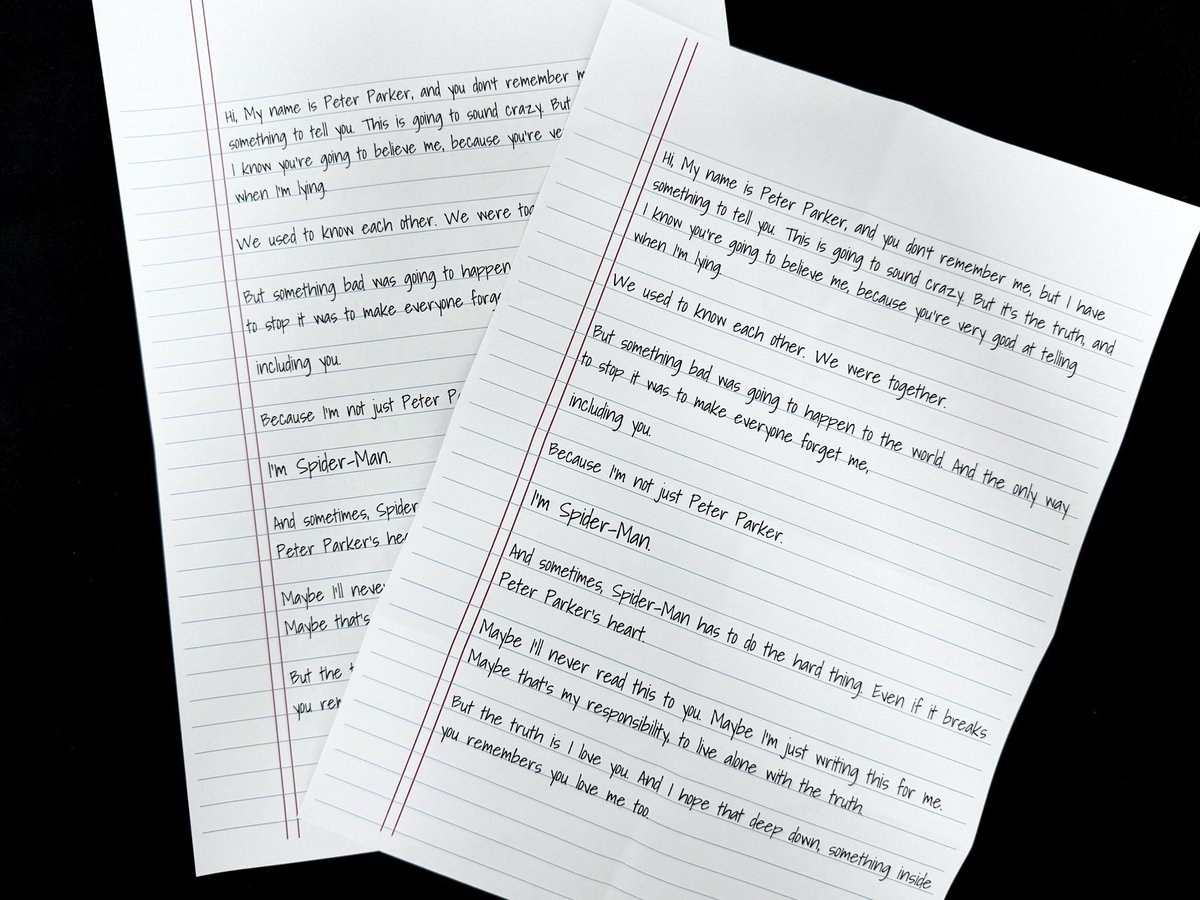 Hi, My name is Peter Parker, and you don't remember
something to tell you. This is going to sound crazy. But
I know you're going to believe me, because you're
when I'm lying.
We used to know each other. We were
But something bad was going to happen
to stop it was to make everyone
including you.
Because I'm not just Peter
I'm Spider-Man.
And sometimes, Spider
Peter Parker's
Maybe I'll
Maybe that's
But the
you
Hi, My name is Peter Parker, and you don't remember me, but I have
something to tell you. This is going to sound crazy. But it's the truth, and
I know you're going to believe me, because you're very good at telling
when I'm lying.
We used to know each other. We were together.
But something bad was going to happen to the world. And the only way
to stop it was to make everyone forget me,
including you.
Because I'm not just Peter Parker.
I'm Spider-Man.
And sometimes, Spider-Man has to do the hard thing. Even if it breaks
Peter Parker's heart.
Maybe I'll never read this to you. Maybe I'm just writing this for me.
Maybe that's my responsibility, to live alone with the truth.
But the truth is I love you. And I hope that deep down, something inside
you remembers you love me too.